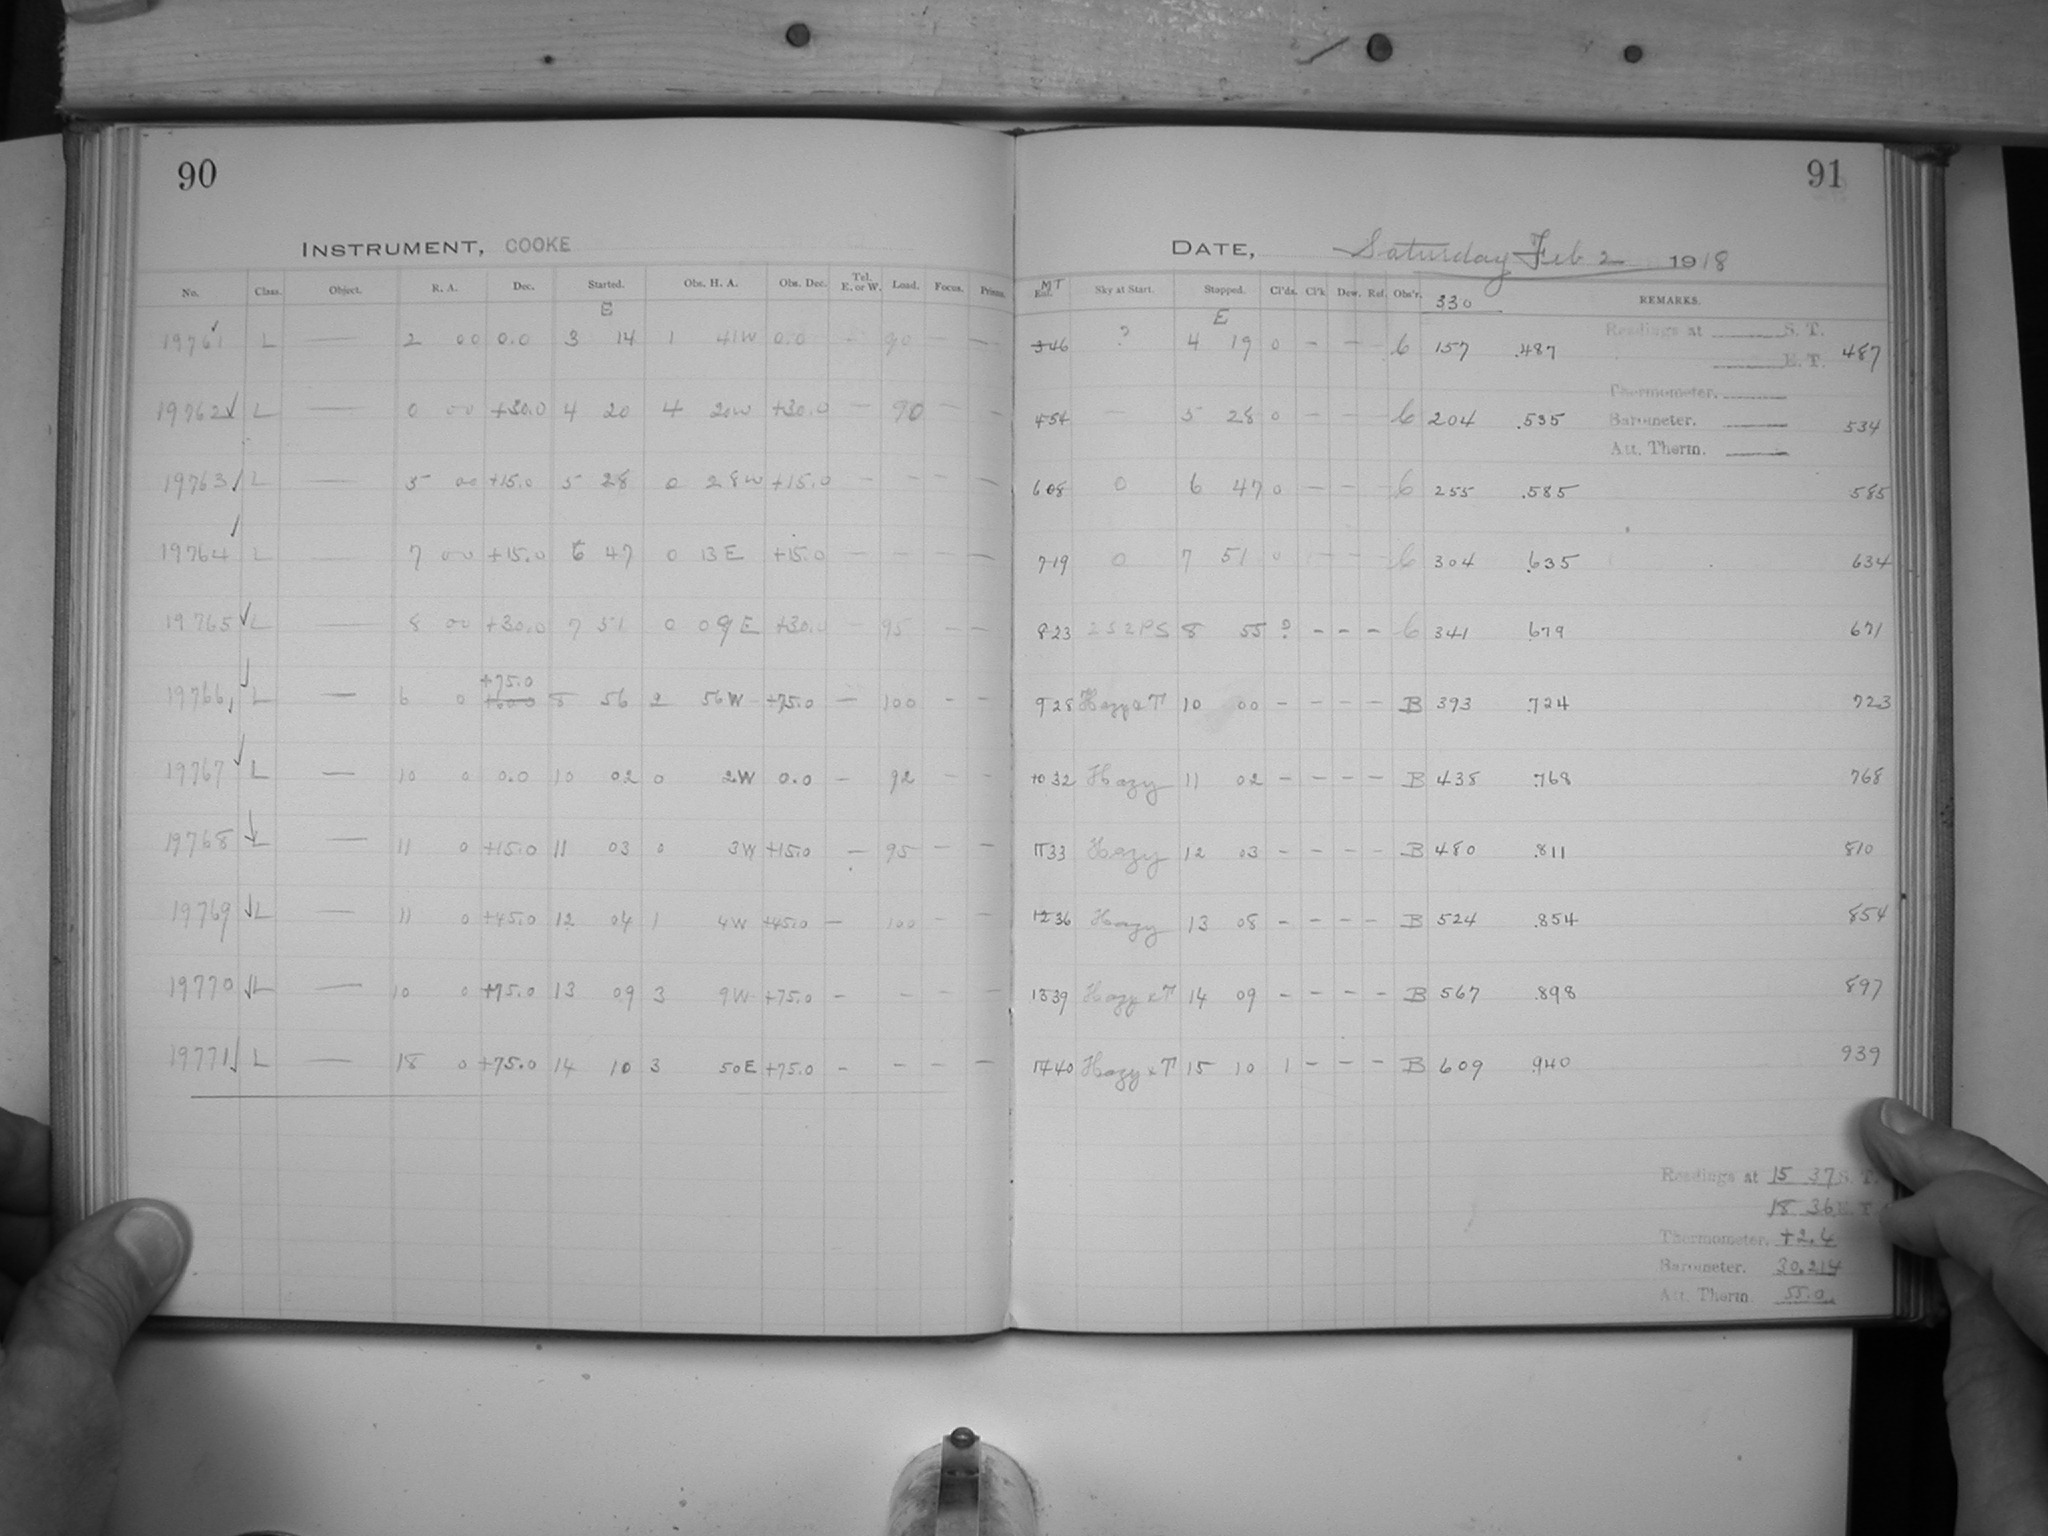 90
INSTRUMENT, COOKE
No. Class. Object. R. A. Dec. Started. Obs. H. A. Obs. Dec. Tel. E. or W. Load. Focus.
E
19761 L — 2 00 0.0 3 14 1 41W 0.0 - 90 - -
19762 L — 0 00 +30.0 4 20 4 20W +30.0 - 90 - -
19763 L — 5 00 +15.0 5 28 0 28W +15.0 - - - -
19764 L — 7 00 +15.0 6 47 0 13E +15.0 - - - -
19765 L — 8 00 +30.0 7 51 0 09E +30.0 - 95 - -
+75.0
19766 L — 6 0 8 56 2 56W +75.0 - 100 - -
19767 L — 10 0 0.0 10 02 0 2W 0.0 - 92 - -
19768 L — 11 0 +15.0 11 03 0 3W +15.0 - 95 - -
19769 L — 11 0 +45.0 12 04 1 4W +45.0 - 100 - -
19770 L — 10 0 +75.0 13 09 3 9W +75.0 - - - -
19771 L — 18 0 +75.0 14 10 3 50E +75.0 - - - -
91
DATE, Saturday Feb 2 1918
MT Sky at Start. Stopped. Cl'ds. Cl'k Dew. Ref. Obs'r. 330 REMARKS.
E
346 ? 4 19 0 - - - 6 157 .487 487
454 - 5 28 0 - - - 6 204 .535 534
608 0 6 47 0 - - - 6 255 .585 585
719 0 7 51 0 - - - 6 304 .635 634
823 2S2PS 8 55 ? - - - 6 341 .679 671
928 10 00 - - - - B 393 .724 723
1032 Hazy 11 02 - - - - B 438 .768 768
1133 Hazy 12 03 - - - - B 480 .811 810
1236 Hazy 13 08 - - - - B 524 .854 854
1339 Hazy x T 14 09 - - - - B 567 .898 897
1440 Hazy x T 15 10 1 - - - B 609 .940 939
Readings at S. T.
E. T.
Thermometer.
Barometer.
Att. Therm.
Readings at 15 37 S. T.
18 36 E. T.
Thermometer. +2.4
Barometer. 30.214
Att. Therm. 55.0